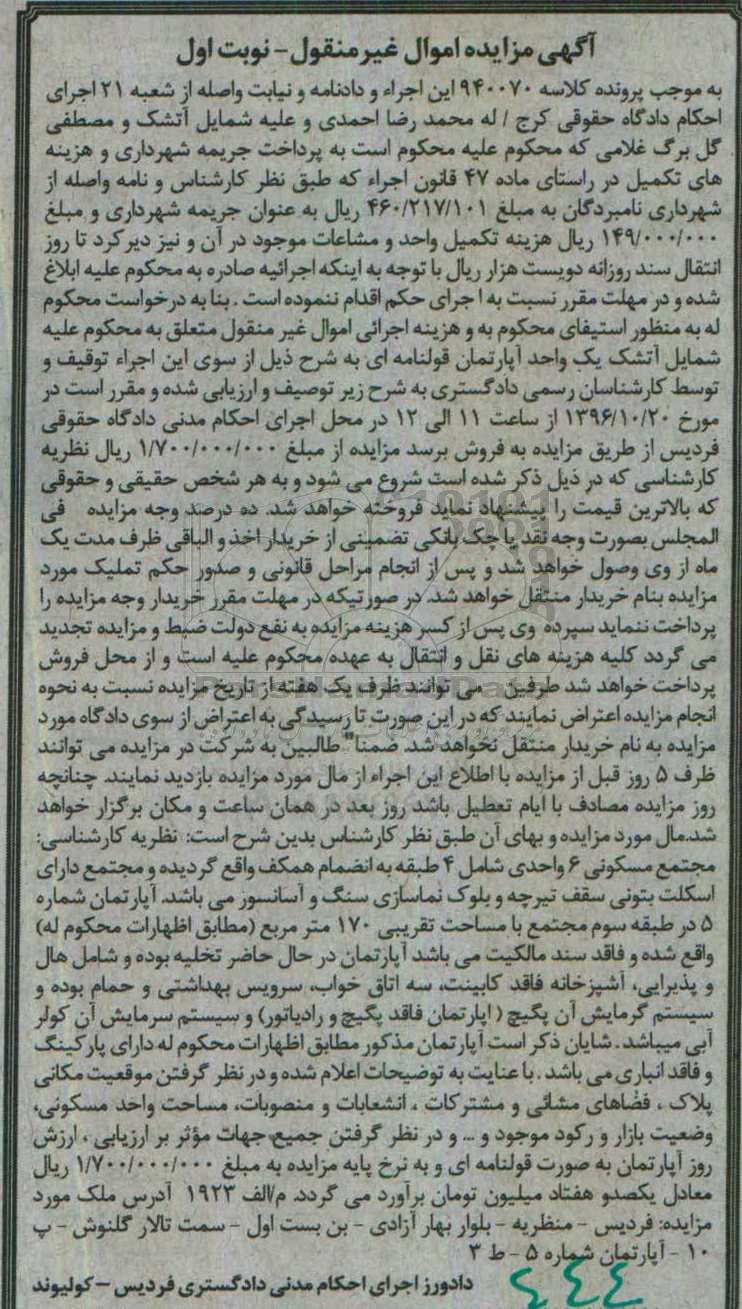 آگهی مزایده اموال غیرمنقول - نوبت اول
به موجب پرونده کلاسه ۹۴۰۰۷۰ این اجراء و دادنامه و نیابت واصله از شعبه ۲۱ اجرای
احکام دادگاه حقوقی کرج / له محمد رضا احمدی و علیه شمایل آتشک و مصطفی
گل برگ غلامی که محکوم علیه محکوم است به پرداخت جریمه شهرداری و هزینه
های تکمیل در راستای ماده ۴۷ قانون اجراء که طبق نظر کارشناس و نامه واصله از
شهرداری نامبردگان به مبلغ ۴۶۰/۲۱۷/۱۰۱ ریال به عنوان جریمه شهرداری و مبلغ
۱۴۹/۰۰۰/۰۰۰ ریال هزینه تکمیل واحد و مشاعات موجود در آن و نیز دیر کرد تا روز
انتقال سند روزانه دویست هزار ریال با توجه به اینکه اجرائیه صادره به محکوم علیه ابلاغ
شده و در مهلت مقرر نسبت به اجرای حکم اقدام ننموده است . بنا به درخواست محکوم
له به منظور استیفای محکوم به و هزینه اجرائی اموال غیر منقول متعلق به محکوم علیه
شمایل آتشک یک واحد آپارتمان قولنامه ای به شرح ذیل از سوی این اجراء توقیف و
توسط کارشناسان رسمی دادگستری به شرح زیر توصیف و ارزیابی شده و مقرر است در
مورخ ۱۳۹۶/۱۰/۲۰ از ساعت ۱۱ الی ۱۲ در محل اجرای احکام مدنی دادگاه حقوقی
فردیس از طریق مزایده به فروش برسد مزایده از مبلغ ۱/۷۰۰/۰۰۰/۰۰۰ ریال نظریه
کارشناسی که در ذیل ذکر شده است شروع می شود و به هر شخص حقیقی و حقوقی
که بالاترین قیمت را پیشنهاد نماید فروخته خواهد شد. ده درصد وجه مزایده فی
المجلس بصورت وجه نقد یا چک بانکی تضمینی از خریدار اخذ و الباقی ظرف مدت یک
ماه از وی وصول خواهد شد و پس از انجام مراحل قانونی و صدور حکم تملیک مورد
مزایده بنام خریدار منتقل خواهد شد. در صورتیکه در مهلت مقرر خریدار وجه مزایده را
پرداخت ننماید سپرده وی پس از کسر هزینه مزایده به نفع دولت ضبط و مزایده تجدید
می گردد کلیه هزینه های نقل و انتقال به عهده محکوم علیه است و از محل فروش
پرداخت خواهد شد طرفین می توانند ظرف یک هفته از تاریخ مزایده نسبت به نحوه
انجام مزایده اعتراض نمایند که در این صورت تا رسیدگی به اعتراض از سوی دادگاه مورد
مزایده به نام خریدار منتقل نخواهد شد. ضمنا" طالبین به شرکت در مزایده می توانند
ظرف ۵ روز قبل از مزایده با اطلاع این اجراء از مال مورد مزایده بازدید نمایند. چنانچه
روز مزایده مصادف با ایام تعطیل باشد روز بعد در همان ساعت و مکان برگزار خواهد
شد.مال مورد مزایده و بهای آن طبق نظر کارشناس بدین شرح است: نظریه کارشناسی:
مجتمع مسکونی ۶ واحدی شامل ۴ طبقه به انضمام همکف واقع گردیده و مجتمع دارای
اسکلت بتونی سقف تیرچه و بلوک نماسازی سنگ و آسانسور می باشد. آپارتمان شماره
۵ در طبقه سوم مجتمع با مساحت تقریبی ۱۷۰ متر مربع (مطابق اظهارات محکوم له)
واقع شده و فاقد سند مالکیت می باشد آپارتمان در حال حاضر تخلیه بوده و شامل هال
و پذیرایی، آشپزخانه فاقد کابینت، سه اتاق خواب، سرویس بهداشتی و حمام بوده و
سیستم گرمایش آن پگیچ ( اپارتمان فاقد پگیچ و رادیاتور) و سیستم سرمایش آن کولر
آبی میباشد . شایان ذکر است آپارتمان مذکور مطابق اظهارات محکوم له دارای پارکینگ
و فاقد انباری می باشد . با عنایت به توضیحات اعلام شده و در نظر گرفتن موقعیت مکانی
پلاک ، فضاهای مشائی و مشترکات ، انشعابات و منصوبات، مساحت واحد مسکونی،
وضعیت بازار و رکود موجود و ... و در نظر گرفتن جمیع جهات مؤثر بر ارزیابی ، ارزش
روز آپارتمان به صورت قولنامه ای و به نرخ پایه مزایده به مبلغ ۱/۷۰۰/۰۰۰/۰۰۰ ریال
معادل یکصدو هفتاد میلیون تومان برآورد می گردد. م/الف ۱۹۲۳ آدرس ملک مورد
مزایده: فردیس - منظریه - بلوار بهار آزادی - بن بست اول - سمت تالار گلنوش - پ
۱۰ - آپارتمان شماره ۵ - ط ۳
دادورز اجرای احکام مدنی دادگستری فردیس - کولیوند